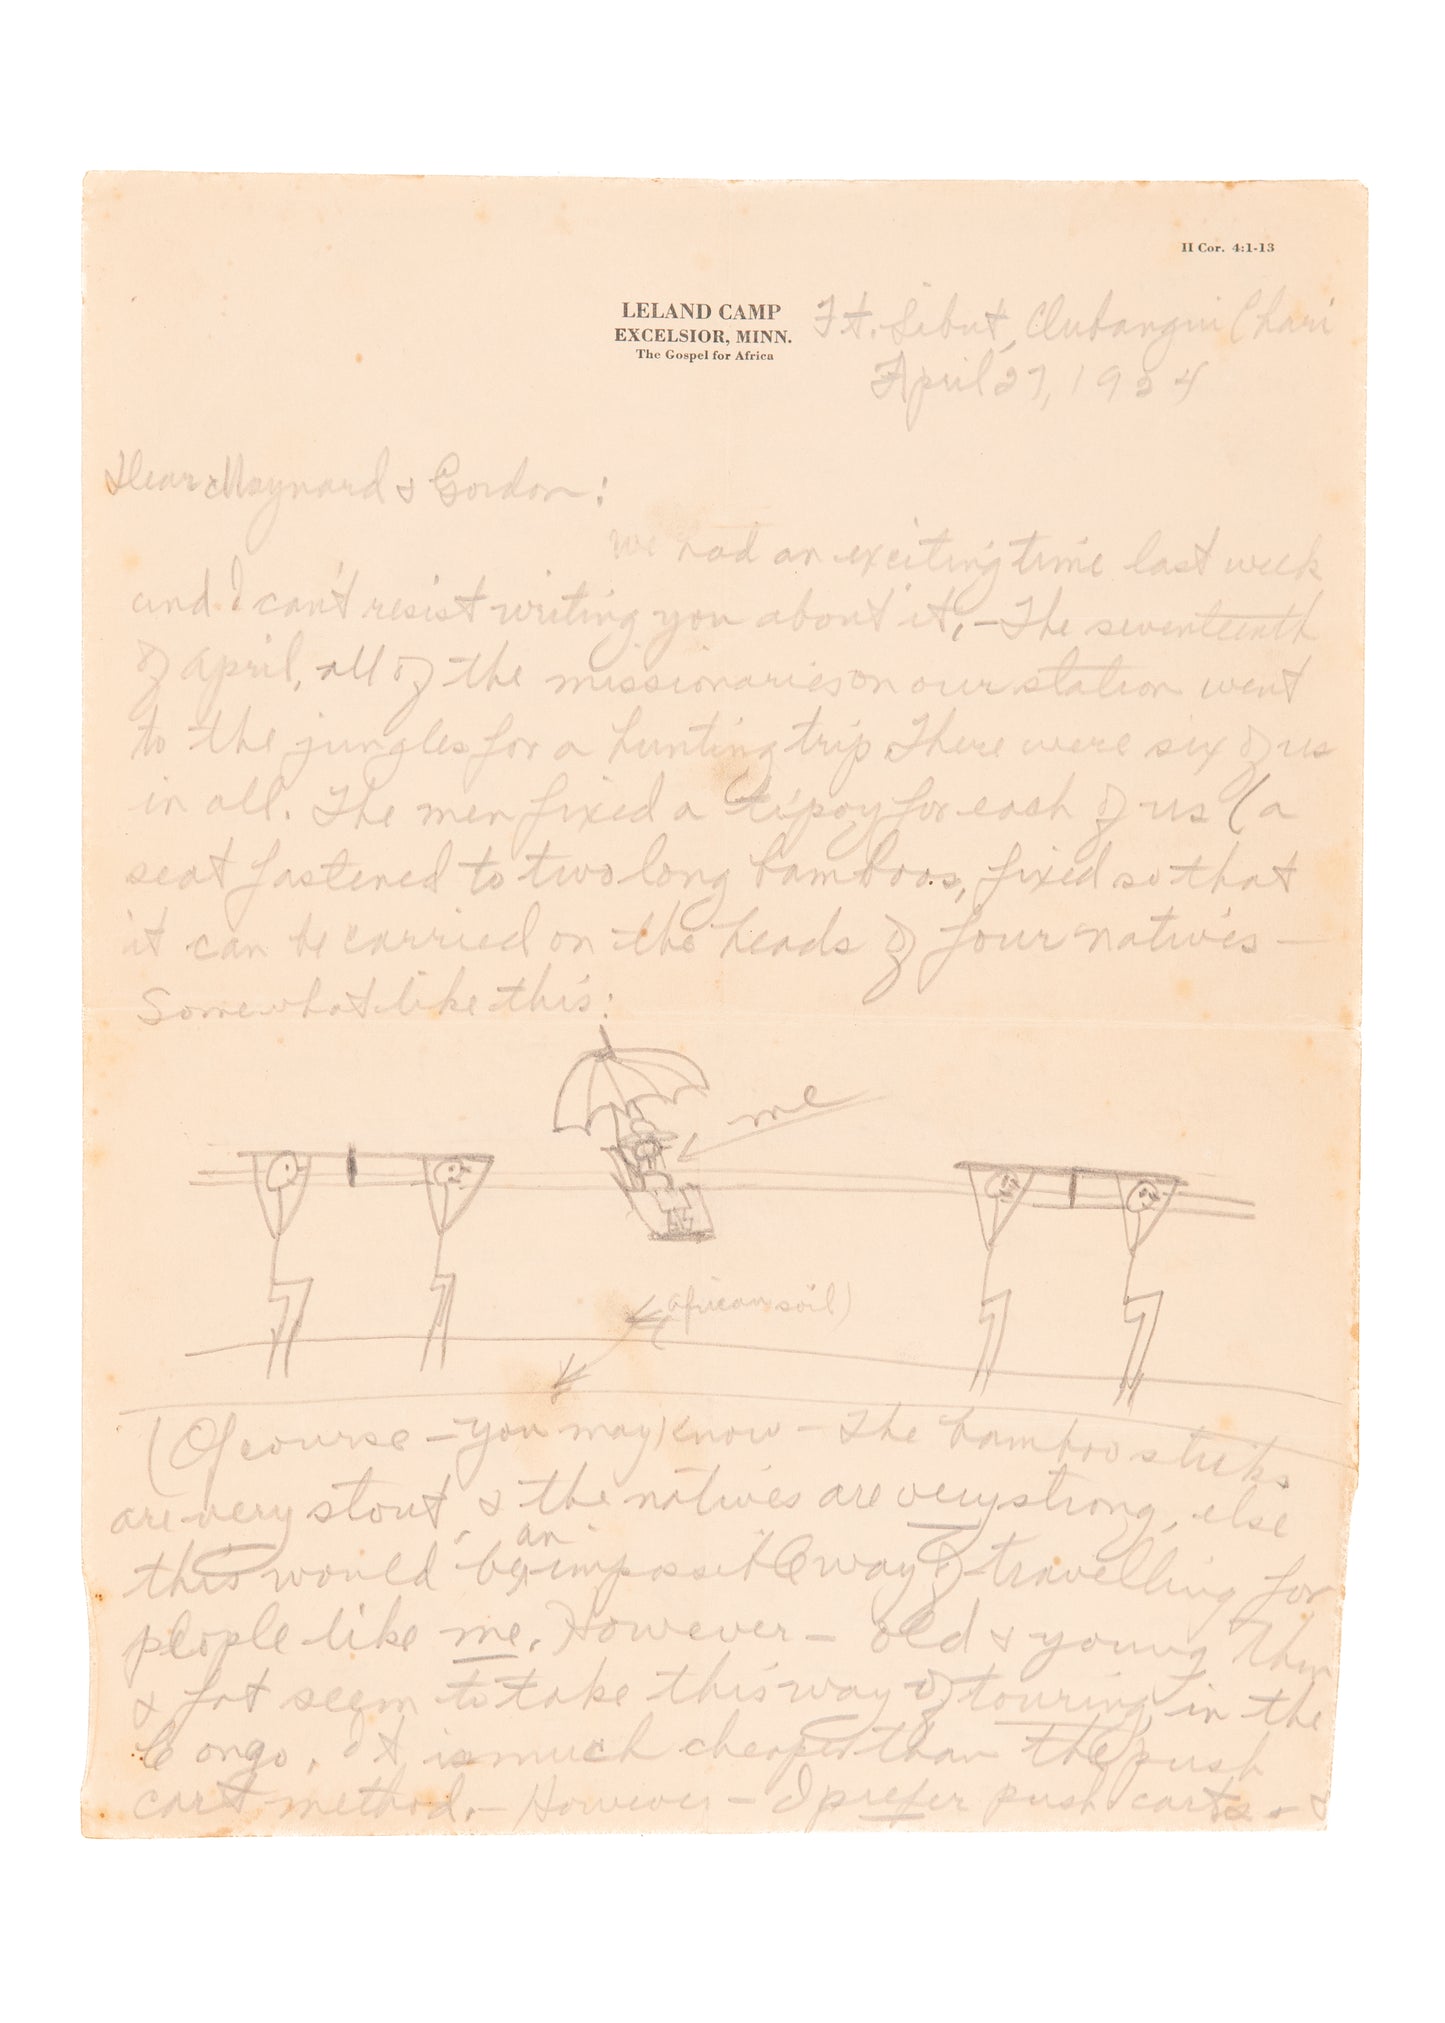 II Cor. 4:1-13
LELAND CAMP
EXCELSIOR, MINN.
The Gospel for Africa
Ft. Sibut, Oubangui Chari
April 27, 1924
Dear Maynard & Gordon:
We had an exciting time last week
and I can't resist writing you about it, - The seventeenth
of april, all of the missionaries on our station went
to the jungles for a hunting trip. There were six of us
in all. The men fixed a tipoy for each of us (a
seat fastened to two long bamboos, fixed so that
it can be carried on the heads of four natives -
Somewhat like this:
me
(african soil)
(Of course - you may know - the bamboo sticks
are very stout, & the natives are very strong, else
this would be an impossible way of travelling for
people like me. However - old & young, thin
& fat seem to take this way of touring in the
Congo. It is much cheaper than the push
cart method. - However - I prefer push carts - &